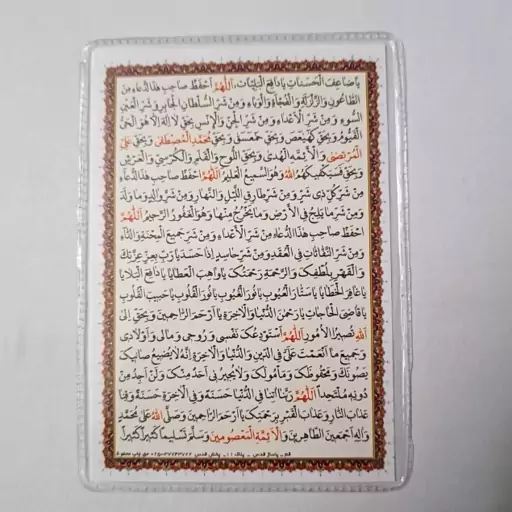 یا ضاعِفَ الْحَسَناتِ یا دافِعَ الْبَلِیّاتِ، اَللّهُمَّ احْفَظْ صاحِبَ هذَا الدُّعاءِ مِنَ
الطّاعُونِ وَالزَّلْزَلَةِ وَالْفُجْأَةِ وَالْوَباءِ وَمِنْ شَرِّ السُّلْطانِ الْجائِرِ وَشَرِّ الْعَیْنِ
السُّوءِ وَمِنْ شَرِّ الْاَعْداءِ وَمِنْ شَرِّ الْجِنِّ وَالْاِنْسِ بِحَقِّ لا اِلهَ اِلّا هُوَ الْحَیُّ
الْقَیُّومُ وَبِحَقِّ کهیعص وَبِحَقِّ حمعسق وَبِحَقِّ مُحَمَّدٍ الْمُصْطَفی وَبِحَقِّ عَلِیٍّ
الْمُرْتَضی وَالْاَئِمَّةِ الْهُدی وَبِحَقِّ اللَّوْحِ وَالْقَلَمِ وَالْکُرْسِیِّ وَالْعَرْشِ
وَبِحَقِّ فَسَیَکْفیکَهُمُ اللهُ وَهُوَ السَّمیعُ الْعَلیمُ اَللّهُمَّ احْفَظْ صاحِبَ هذَا الدُّعاءِ
مِنْ شَرِّ کُلِّ ذی شَرٍّ وَمِنْ شَرِّ طارِقِ فِی اللَّیْلِ وَالنَّهارِ وَمِنْ شَرِّ والِدٍ وَما وَلَدَ
وَمِنْ شَرِّ ما یَلِجُ فِی الْاَرْضِ وَما یَخْرُجُ مِنْها وَهُوَ الْغَفُورُ الرَّحیمُ اَللّهُمَّ
احْفَظْ صاحِبَ هذَا الدُّعاءِ مِنْ شَرِّ الْاَعْداءِ وَمِنْ شَرِّ جَمیعِ الْمِحْنَةِ وَالدّاءِ
وَمِنْ شَرِّ النَّفّاثاتِ فِی الْعُقَدِ وَمِنْ شَرِّ حاسِدٍ اِذا حَسَدَ یا رَبِّ بِعِزِّ عِزَّتِکَ
وَالْقَهْرِ بِلُطْفِکَ وَالرَّحْمَةِ بِرَحْمَتِکَ یا واهِبَ الْعَطایا یا دافِعَ الْبَلایا
یا غافِرَ الْخَطایا یا سَتّارَ الْعُیُوبِ یا نُورَ الْقُلُوبِ یا حَبیبَ الْقُلُوبِ
یا قاضِیَ الْحاجاتِ یا رَحْمنَ الدُّنْیا وَالْاخِرَةِ یا اَرْحَمَ الرّاحِمینَ وَبِحَقِّ اِلَی
اللهِ تَصیرُ الْاُمُورُ اَللّهُمَّ اَسْتَوْدِعُکَ نَفْسی وَرُوحی وَمالی وَاَوْلادی
وَجَمیعَ ما اَنْعَمْتَ عَلَیَّ فِی الدّینِ وَالدُّنْیا وَالْاخِرَةِ اِنَّهُ لا یَضیعُ صانِیکَ
یَصُونُکَ وَمَحْفُوظُکَ وَمَأْمُولُکَ وَلا یُجیرُنی اَحَدٌ مِنْکَ وَلَنْ اَجِدَ مِنْ
دُونِهِ مُلْتَحَداً اَللّهُمَّ رَبَّنا اتِنا فِی الدُّنْیا حَسَنَةً وَفِی الْاخِرَةِ حَسَنَةً وَقِنا
عَذابَ النّارِ وَعَذابَ الْقَبْرِ بِرَحْمَتِکَ یا اَرْحَمَ الرّاحِمینَ وَصَلَّی اللهُ عَلی مُحَمَّدٍ
وَالِهِ اَجْمَعینَ الطّاهِرینَ وَالْاَئِمَّةِ الْمَعْصُومینَ وَسَلَّمَ تَسْلیماً کَثیراً کَثیراً.
قم - پاساژ قدس - پلاک ۱۱ - پخش قدس